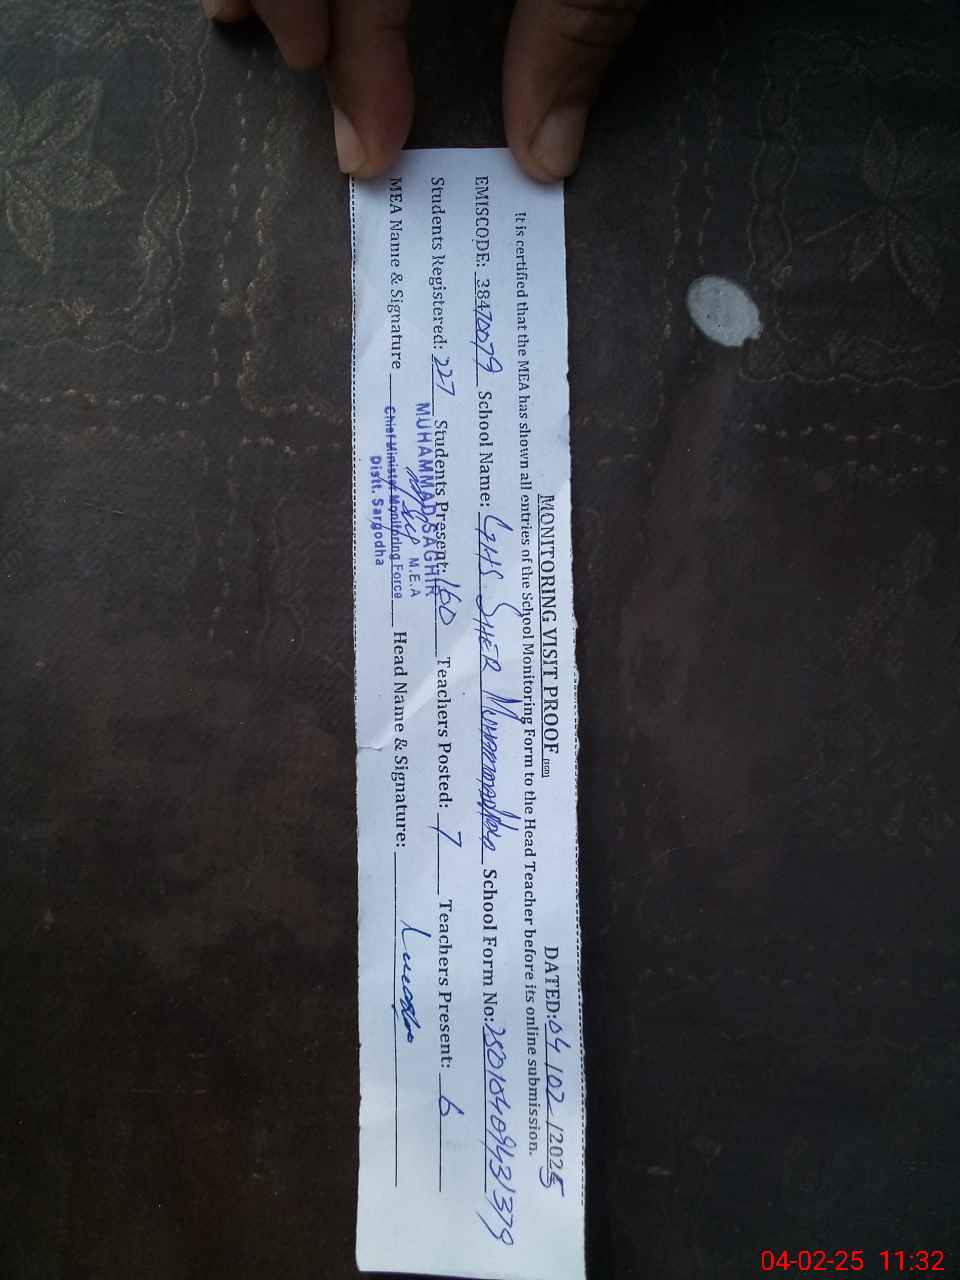 MONITORING VISIT PROOF (SGD) DATED: 04/02/2025
It is certified that the MEA has shown all entries of the School Monitoring Form to the Head Teacher before its online submission.
EMISCODE: 38470079 School Name: GHS SHER MUHAMMAD School Form No:
Students Registered: 227 Students Present: 160 Teachers Posted: 7 Teachers Present: 6
MEA Name & Signature Head Name & Signature:
MUHAMMAD SAGHIR
M.E.A
Chief Minister Monitoring Force
Distt. Sargodha
04-02-25 11:32